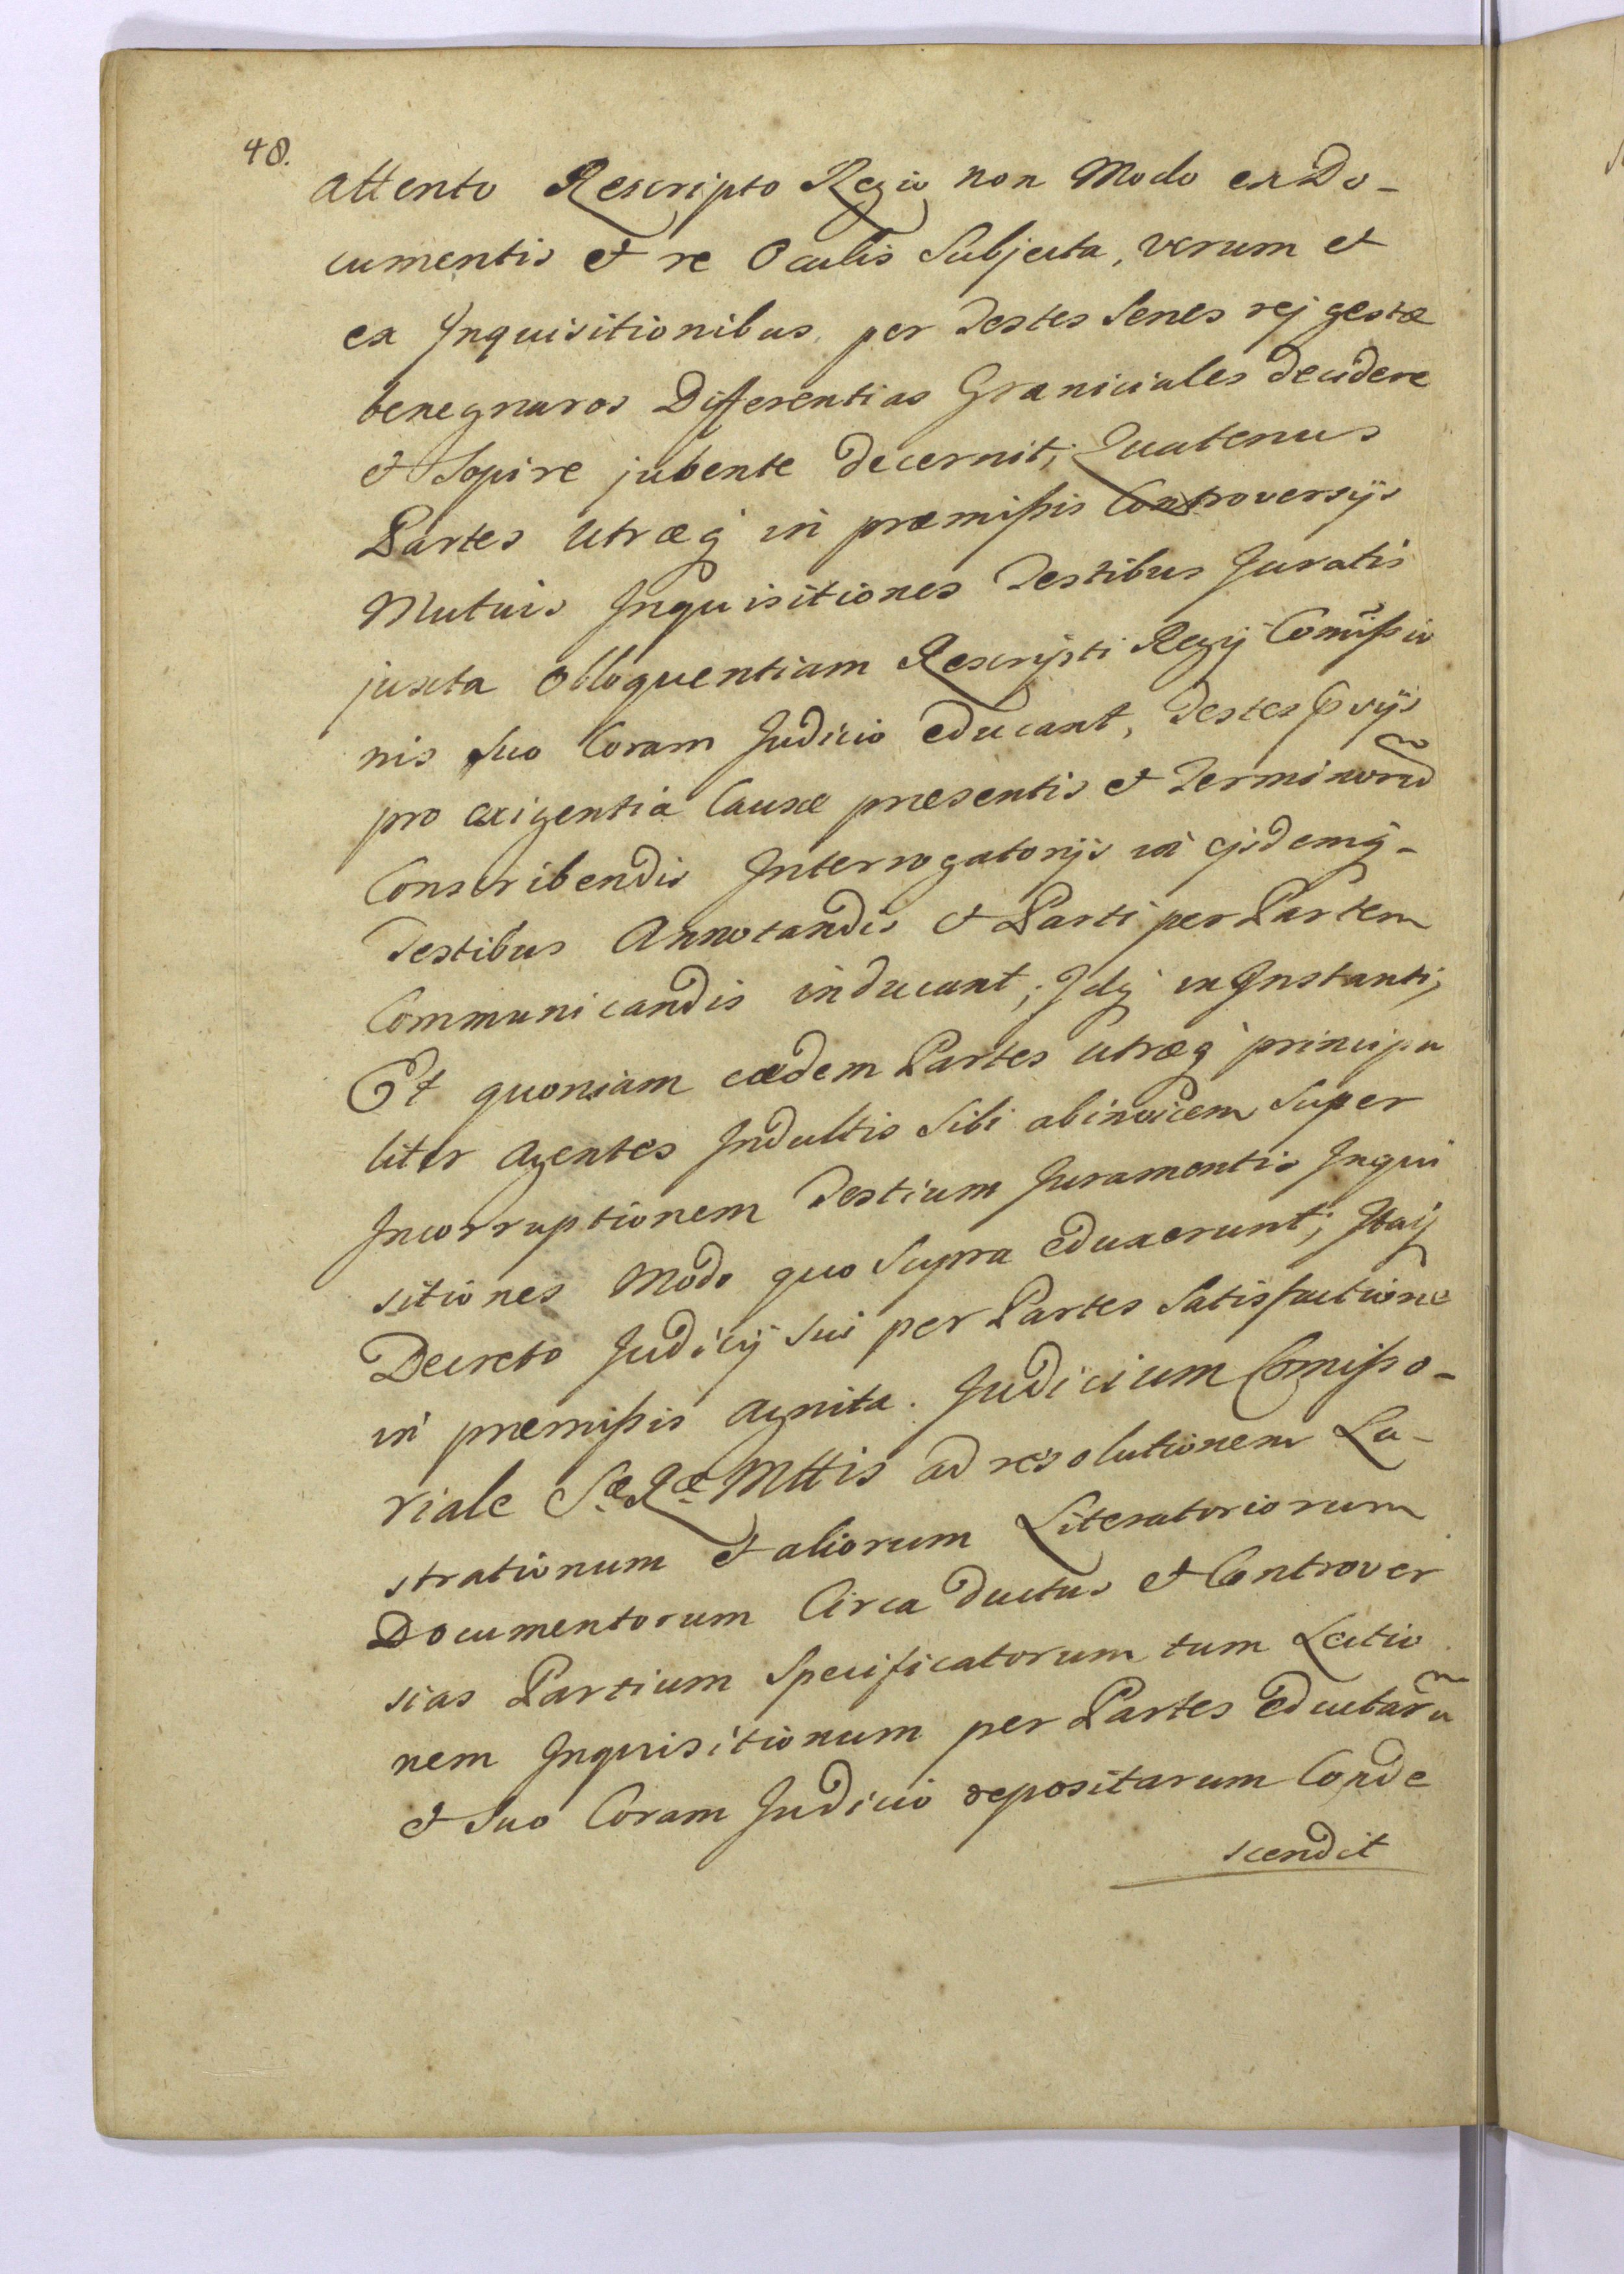 48.
attento Rescripto Regio non Modo ex Do-
cumentis et re Oculis Subjecta, verum et
ex Inquisitionibus per Testes Senes rej gestæ
benegnaros Differentias Graniciales decidere
et Sopire jubente decernit; Quatenus
Partes Utræq in præmißis Controversijs
Mutuis Inquisitiones Testibus Juratis
juxta Obloquentiam Rescripti Regij Comißio
nis Suo Coram Judicio educant, Testes
pro exigentia Causæ præsentis et Terminorũ
Conscribendis Interrogatorijs in ejsdemq-
Testibus Annotandis et Parti per Partem
Communicandis inducant; Idq in Instanti;
Et quoniam eædem Partes Utræq principa
liter agentes Indultis Sibi abinvicem Super
Incorruptionem Testium Juramentis Inqui
sitiones Modo quo Supra eduxerunt; Itaq
Decreto Judicij Sui per Partes Satisfactione
in præmißis agnita. Judicium Comißo-
riale Sæ Ræ Mttis ad resolutionem La-
strationum et aliorum Literatoriorum
Documentorum Circa ductus et Controver
sias Partium Specificatorum tum Lectio
nem Inquisitionum per Partes Eductarũ
et Suo Coram Judicio repositarum Conde
scendit